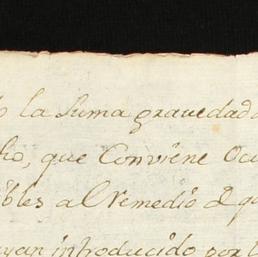 la suma gravedad
que Conviene Ocu
bles al remedio d q
yan introducido por l